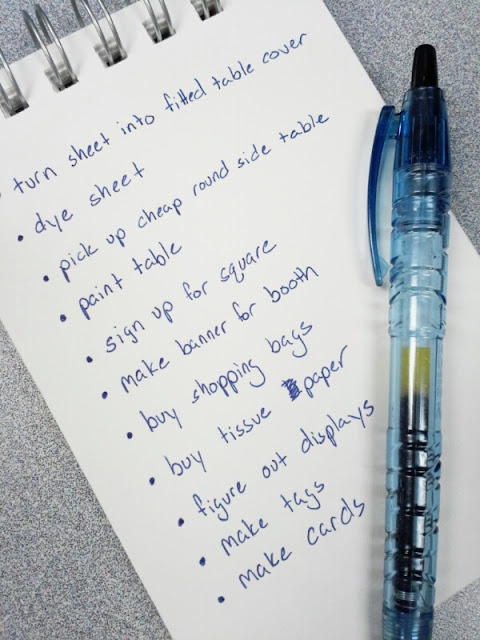 • turn sheet into fitted table cover
• dye sheet
• pick up cheap round side table
• paint table
• sign up for square
• make banner for booth
• buy shopping bags
• buy tissue paper
• figure out displays
• make tags
• make cards